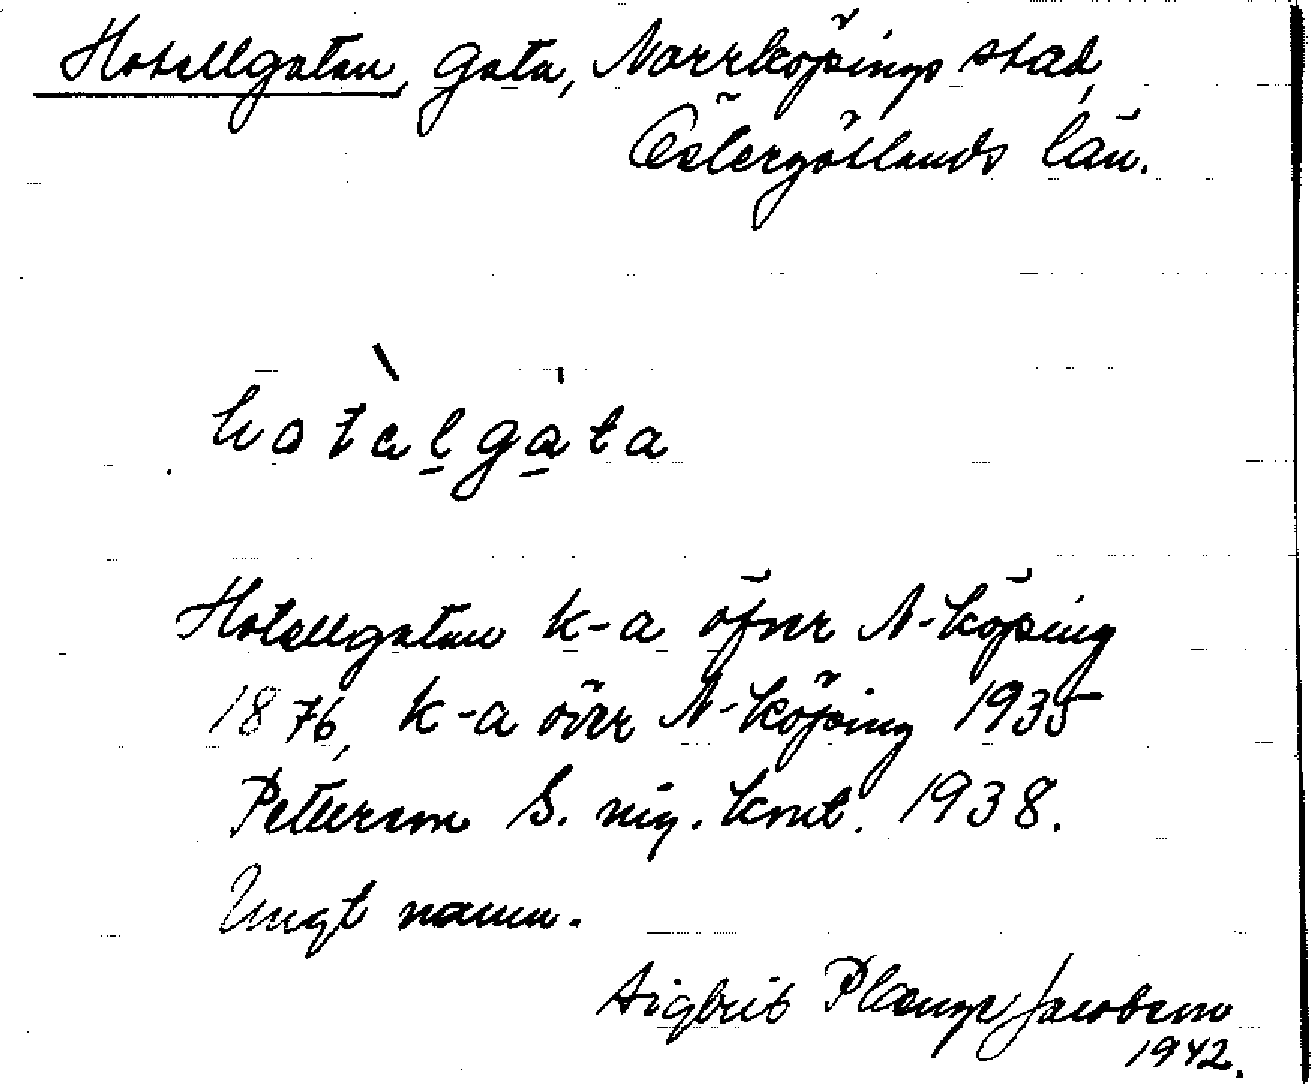 Hotellgatan, gata, Norrköpings stad,
Östergötlands län.
hotälgata
Hotellgatan k-a öfver N-köping
1876, k-a över N-köping 1935
Petterson S. uig. kvnt. 1938.
Ungt namn.
Sigbrit Plænge Jacobson
1942.